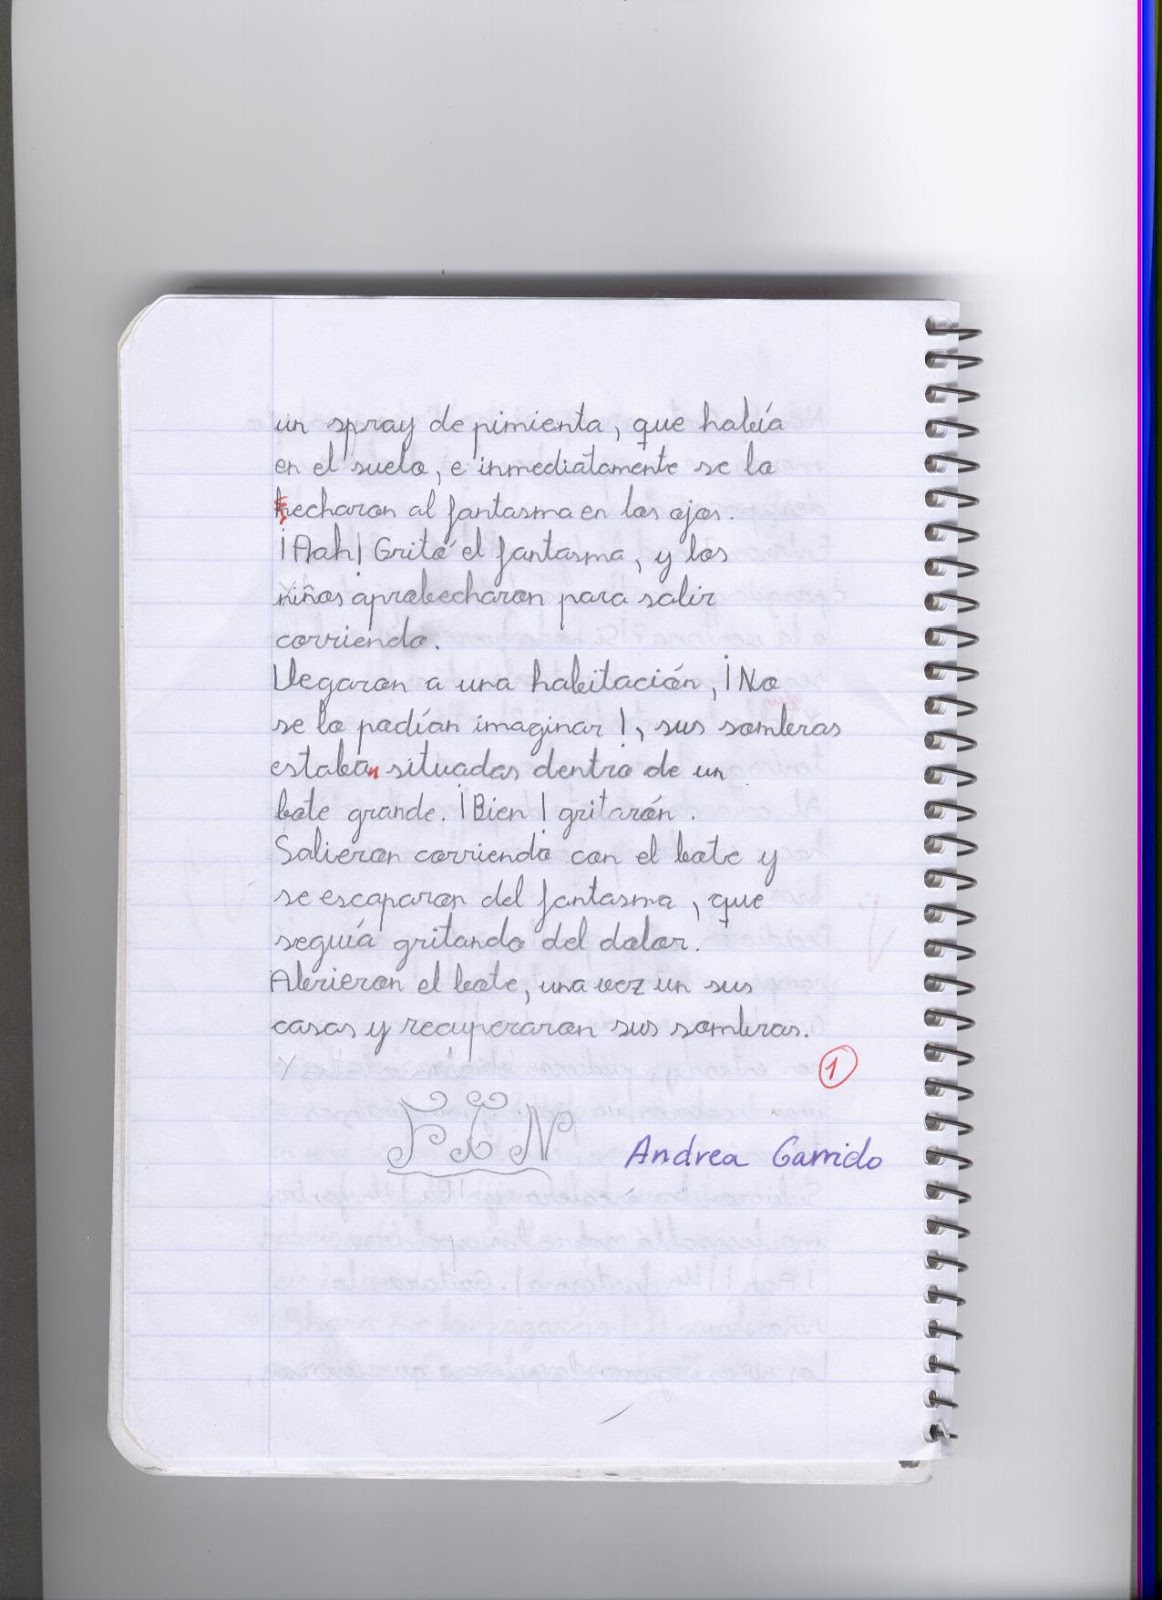 un spray de pimienta, que había
en el suelo, e inmediatamente se lo
hecharon al fantasma en los ojos.
¡Aah! Gritó el fantasma, y los
niños aprobecharon para salir
corriendo.
Llegaron a una habitación, ¡No
se lo podían imaginar!, sus sombras
estaban situadas dentro de un
bote grande. ¡Bien! gritarón.
Salieron corriendo con el bote y
se escaparon del fantasma, que
seguía gritando del dolor.
Abrieron el bote, una vez un sus
casas y recuperaron sus sombras.
1
FIN
Andrea Garrido